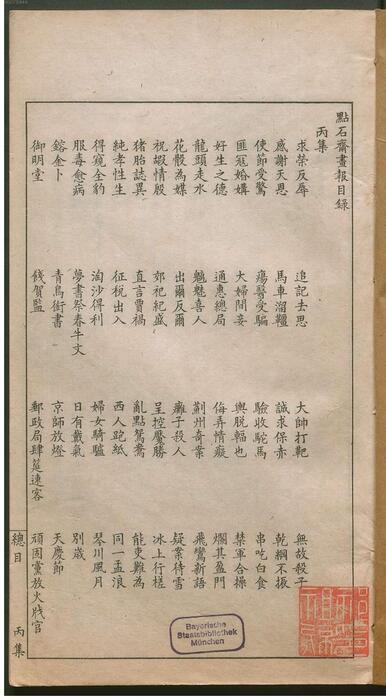 點石齋畫報目錄
丙集
求榮反辱 追記去思 大帥打靶 無故殺子
感謝天恩 馬車溜韁 誠求保赤 乾綱不振
使節受驚 瘍醫受騙 驗收駝馬 串吃白食
匪寇婚媾 大婦鬨妾 輿脫輻也 禁軍合操
好生之德 通惠總局 侮弄情癡 爛其盈門
龍頭走水 魑魅喜人 荊州奇案 飛鸞新語
花骰為媒 出爾反爾 癱子殺人 疑案待雪
祝嘏情殷 郊祀紀盛 呈控魘勝 冰上行槎
豬胎誌異 直言賈禍 亂點鴛鴦 能吏難為
純孝性生 征稅出入 西人跑紙 同一孟浪
得窺全豹 淘沙得利 婦女騎驢 琴川風月
服毒愈病 夢書祭春牛文 日有戴氣 別歲
鎔金卜 青鳥銜書 京師放燈 天慶節
御明堂 餞賀監 郵政局肆筵速客 頑固黨放火戕官
總目 丙集
Bayerische
Staatsbibliothek
München